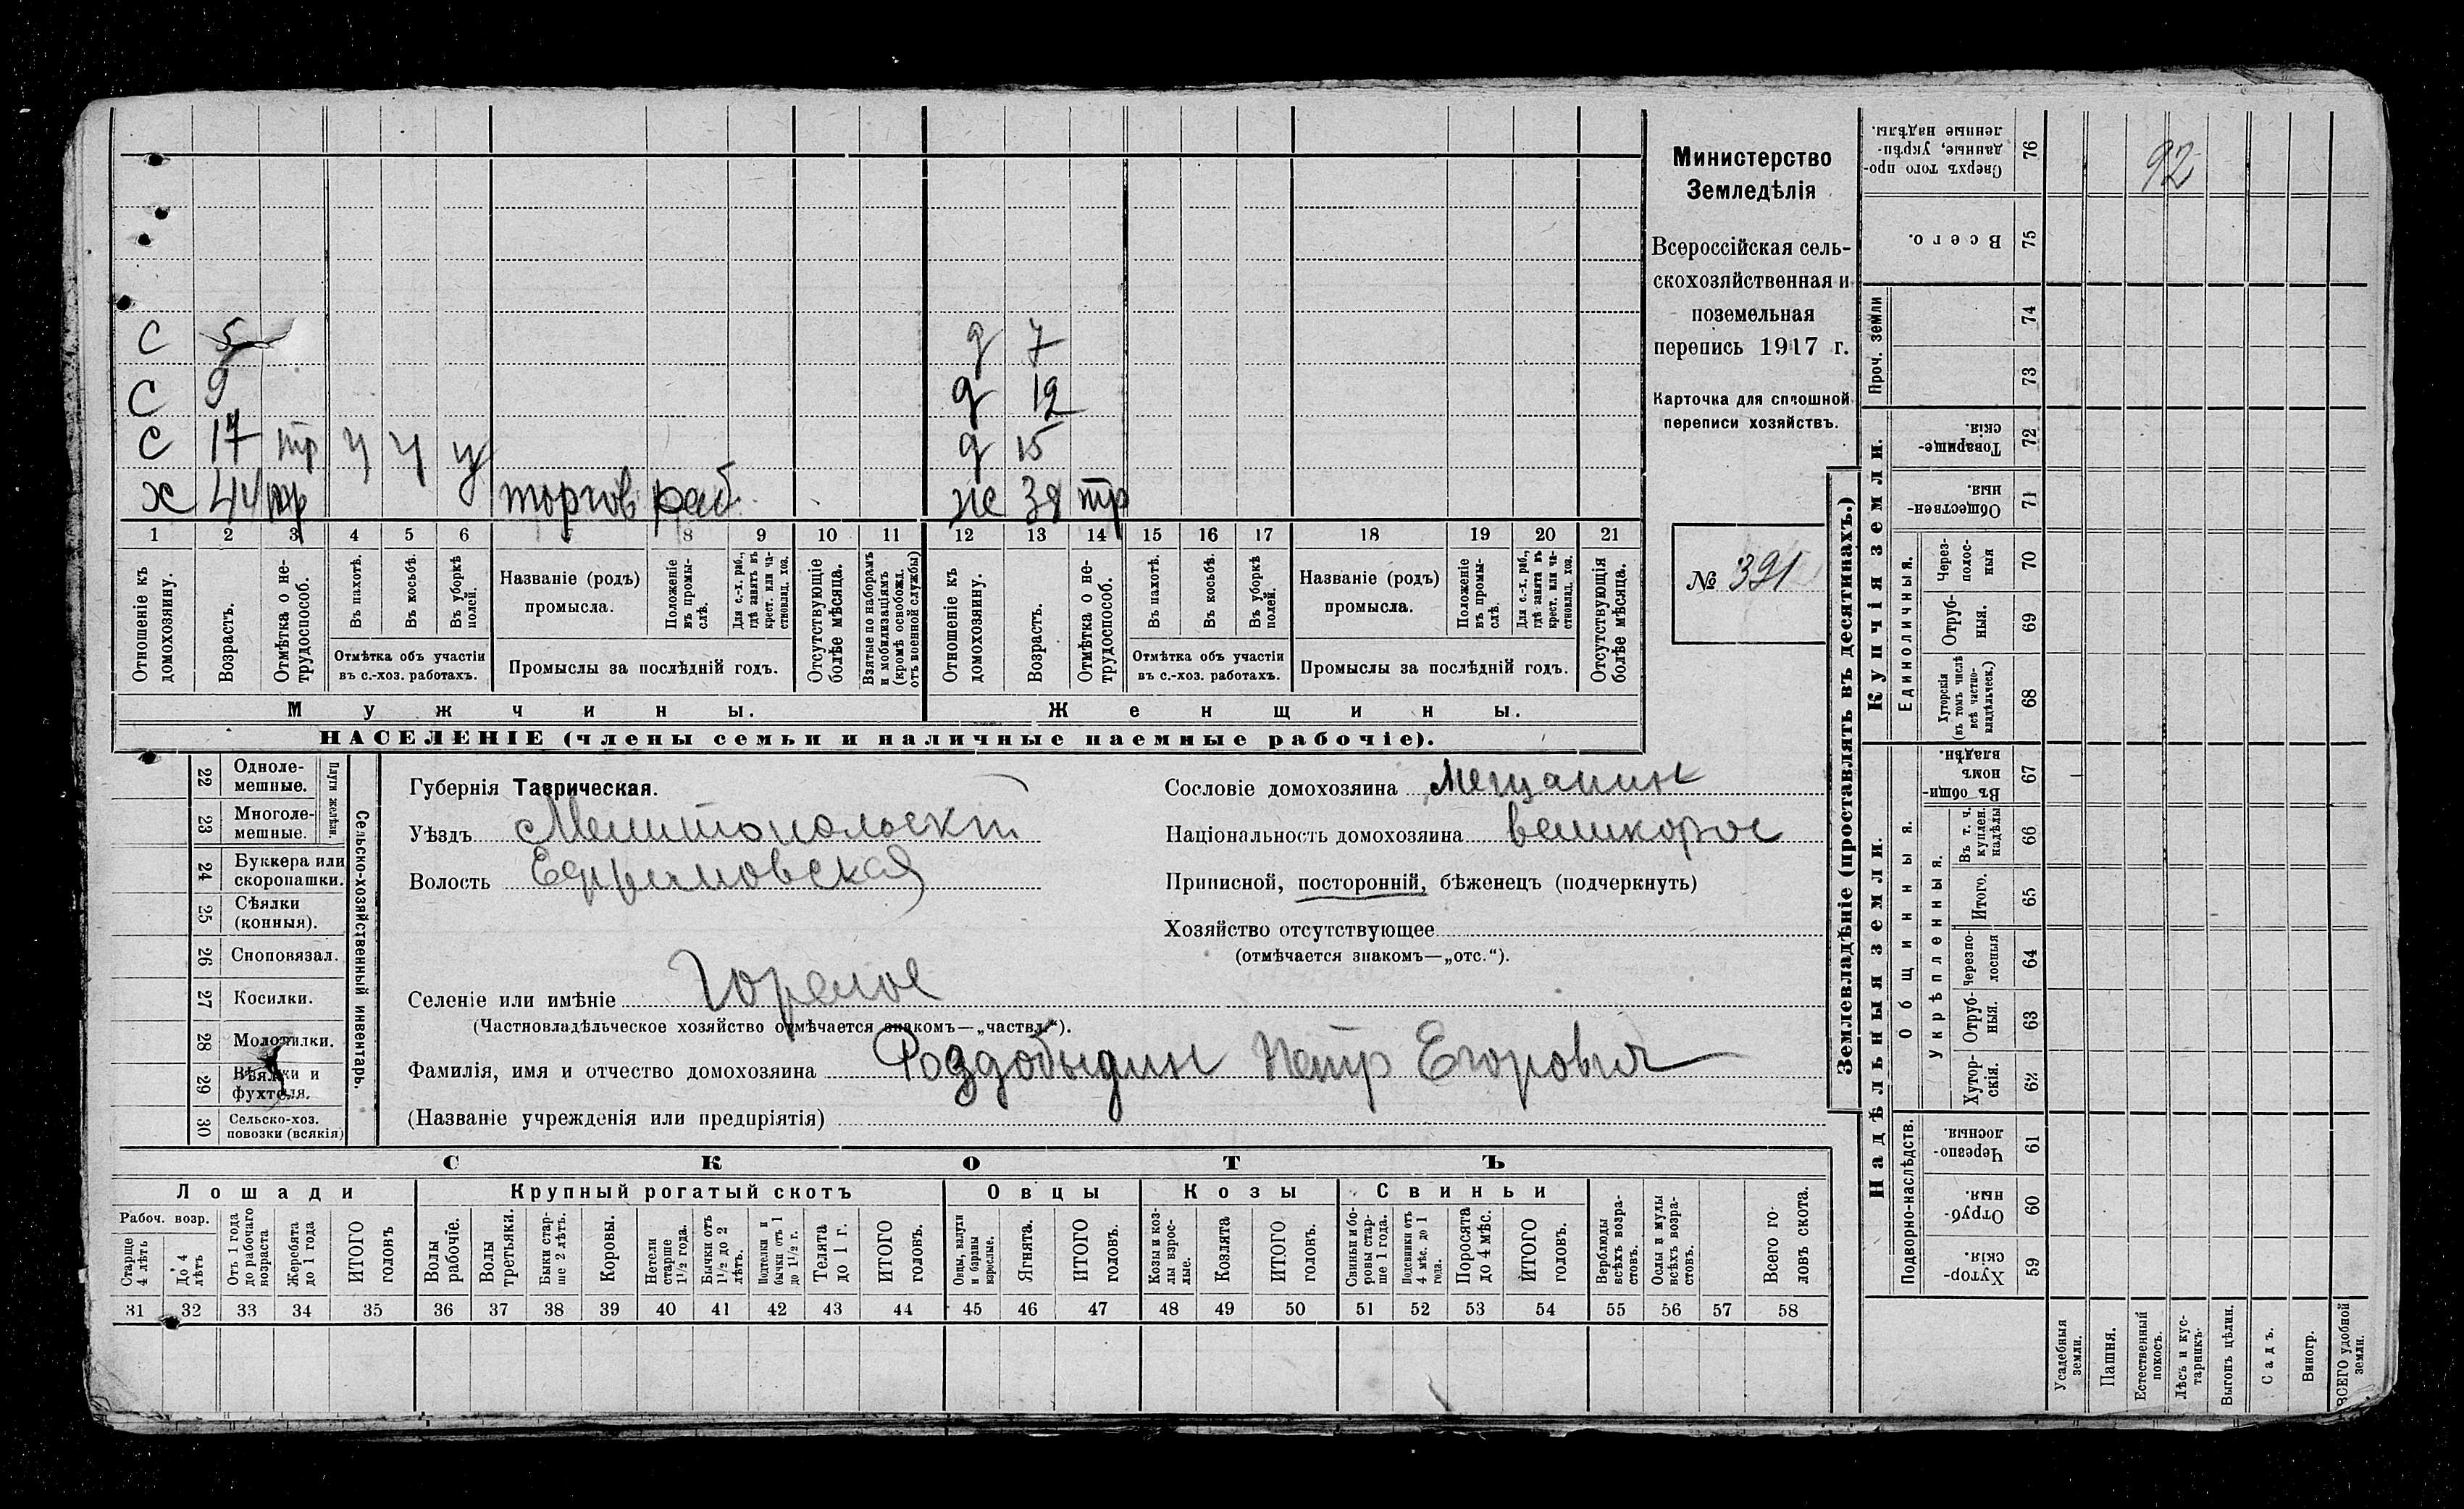 С 5 д 7
С 9 д 12
С 17 тр у у у д 15
Х 44 тр торгов раб. ж 38 тр
1 2 3 4 5 6 7 8 9 10 11 12 13 14 15 16 17 18 19 20 21
Отношеніе къ домохозяину.
Возрастъ.
Отмѣтка о не-
трудоспособ.
Въ пахотѣ.
Въ косьбѣ.
Въ уборкѣ полей.
Отмѣтка объ участіи
въ с.-хоз. работахъ.
Названіе (родъ)
промысла.
Положеніе въ промы-
слѣ.
Для с.-х. раб., гдѣ занятъ въ крест. или ча-
стновлад. хоз.
Промыслы за послѣдній годъ.
Отсутствующіе болѣе мѣсяца.
Взятые по наборамъ и мобилизаціямъ (кромѣ освобожд. отъ военной службы)
Отношеніе къ домохозяину.
Возрастъ.
Отмѣтка о не-
трудоспособ.
Въ пахотѣ.
Въ косьбѣ.
Въ уборкѣ полей.
Отмѣтка объ участіи
въ с.-хоз. работахъ.
Названіе (родъ)
промысла.
Положеніе въ промы-
слѣ.
Для с.-х. раб., гдѣ занята въ крест. или ча-
стновлад. хоз.
Промыслы за послѣдній годъ.
Отсутствующія болѣе мѣсяца.
Мужчины.
Женщины.
НАСЕЛЕНІЕ (члены семьи и наличные наемные рабочіе).
Министерство
Земледѣлія
Всероссійская сель-
скохозяйственная и
поземельная
перепись 1917 г.
Карточка для сплошной
переписи хозяйствъ.
№ 391
22 Одноле-
мешные.
23 Многоле-
мешные.
Плуги желѣзн.
24 Буккера или
скоропашки.
25 Сѣялки
(конныя).
26 Сноповязал.
27 Косилки.
28 Молотилки.
29 Вѣялки и
фухтеля.
30 Сельско-хоз.
повозки (всякія)
Сельско-хозяйственный инвентарь.
Губернія Таврическая.
Уѣздъ Мелитопольскій
Волость Ефремовская
Селеніе или имѣніе Горелое
(Частновладѣльческое хозяйство отмѣчается знакомъ—„частвл.“).
Фамилія, имя и отчество домохозяина Роздобыдин Петр Егорович
(Названіе учрежденія или предпріятія)
Сословіе домохозяина мещанин
Національность домохозяина великорос
Приписной, посторонній, бѣженецъ (подчеркнуть)
Хозяйство отсутствующее
(отмѣчается знакомъ—„отс.“).
СКОТЪ
Лошади
Крупный рогатый скотъ
Овцы
Козы
Свиньи
Рабоч. возр.
Старше 4 лѣтъ
До 4 лѣтъ
Отъ 1 года до рабочаго возраста
Жеребята до 1 года
ИТОГО головъ
Волы рабочіе.
Волы третьяки.
Быки стар-
ше 2 лѣтъ.
Коровы.
Нетели старше 1½ года.
Бычки отъ 1½ до 2 лѣтъ.
Подтелки и бычки отъ 1 до 1½ г.
Телята до 1 г.
ИТОГО головъ.
Овцы, валухи и бараны взрослые.
Ягнята.
ИТОГО головъ.
Козы и коз-
лы взрос-
лые.
Козлята
ИТОГО головъ.
Свиньи и бо-
ровы стар-
ше 1 года.
Подсвинки отъ 4 мѣс. до 1 года.
Поросята до 4 мѣс.
ИТОГО головъ.
Верблюды всѣхъ возра-
стовъ.
Ослы и мулы всѣхъ возра-
стовъ.
Всего го-
ловъ скота.
31 32 33 34 35 36 37 38 39 40 41 42 43 44 45 46 47 48 49 50 51 52 53 54 55 56 57 58
Землевладѣніе (проставлять въ десятинахъ.)
Надѣльныя земли.
Купчія земли.
Проч. земли
Сверхъ того про-
данные, укрѣп-
ленные надѣлы.
76
92
Всего.
75
74
73
Товарище-
скія.
72
Обществен-
ныя.
71
Единоличныя.
Через-
полос-
ныя
70
Отруб-
ныя.
69
Хуторскія
(въ томъ числѣ всѣ частно-
владѣльческ.)
68
Общинныя.
Въ общин-
номъ
владѣн.
67
Укрѣпленныя.
Въ т. ч. куплен. надѣлы
66
Итого.
65
Черезпо-
лосныя
64
Отруб-
ныя.
63
Хутор-
скія.
62
Подворно-наслѣдств.
Черезпо-
лосныя.
61
Отруб-
ныя.
60
Хутор-
скія.
59
Усадебныя земли.
Пашня.
Естественный покосъ.
Лѣсъ и кус-
тарникъ.
Выгонъ цѣлин.
Садъ.
Виногр.
ВСЕГО удобной земли.